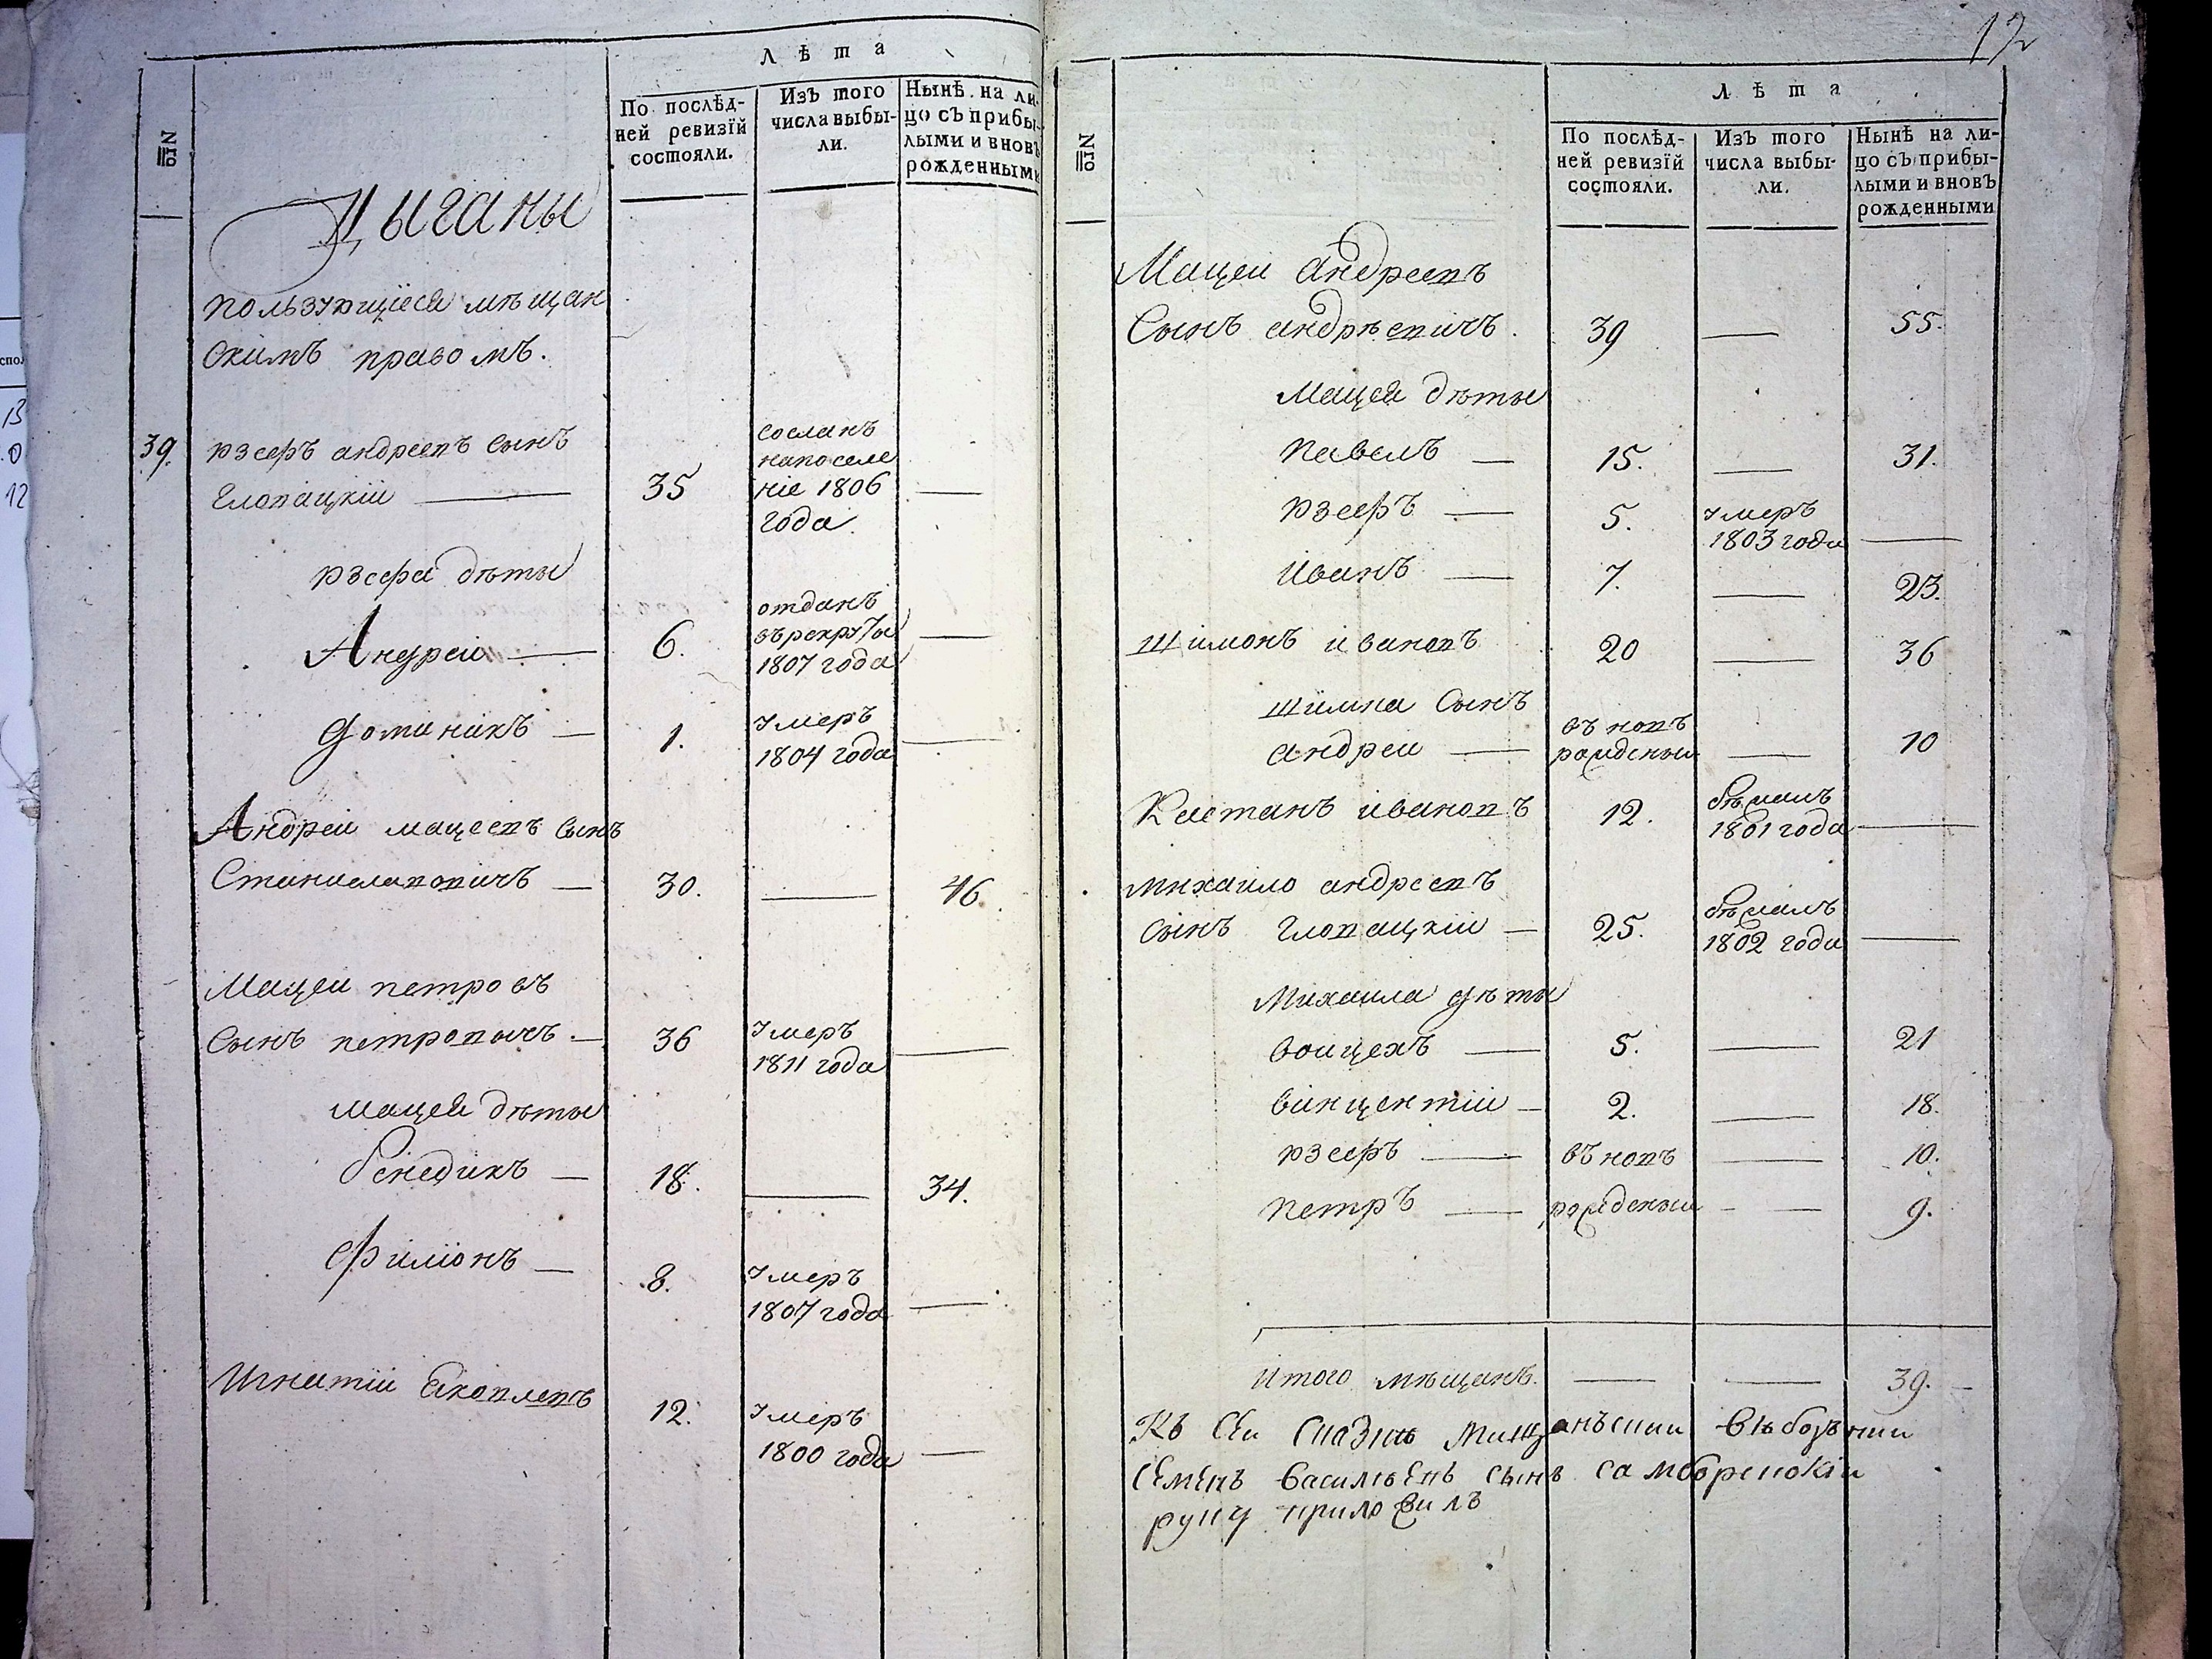 Лѣта
№
По послѣд-
ней ревизїй
состояли.
Изъ того
числа выбы-
ли.
Нынѣ на ли-
цо съ прибы-
лыми и вновъ
рожденными
Цыганы
пользующїеся мѣщан
скимъ правомъ.
39.
юзефъ андреевъ сынъ
Глопацкій —
35
сосланъ
на поселе
ніе 1806
года.
—
юзефа дѣты
Андреи —
6.
отданъ
въ рекруты
1807 года
—
доминикъ —
1.
умеръ
1804 года
—
Андреи мацеевъ сынъ
Станиславовичъ —
30.
—
46.
Мацеи петровъ
Сынъ петровычъ —
36
умеръ
1811 года
—
мацея дѣты
бенедикъ —
18.
—
34.
Филїонъ —
8.
умеръ
1807 года
—
Игнатіи Яковлевъ
12.
умеръ
1800 года
—
12
Лѣта
№
По послѣд-
ней ревизїй
состояли.
Изъ того
числа выбы-
ли.
Нынѣ на ли-
цо съ прибы-
лыми и вновъ
рожденными
Мацеи андреевъ
Сынъ андрѣевичъ.
39
—
55.
мацея дѣты
павелъ —
15.
—
31.
юзефъ —
5.
умеръ
1803 года
—
иванъ —
7.
—
23.
шимонъ ивановъ
20
—
36
шимна сынъ
андреи —
въ новъ
рожденыи
—
10
Кастанъ ивановъ
12.
бѣжалъ
1801 года
—
михаило андреевъ
сынъ глопацкіи —
25.
бѣжалъ
1802 года
—
Михаила дѣты
воицехъ —
5.
—
21
винцентіи —
2.
—
18.
юзефъ —
въ новъ
—
10.
петръ —
рожденыи
—
9.
итого мѣщанъ.
—
—
39. —
Къ сеи сказкѣ
Семенъ сынъ
руку приложилъ